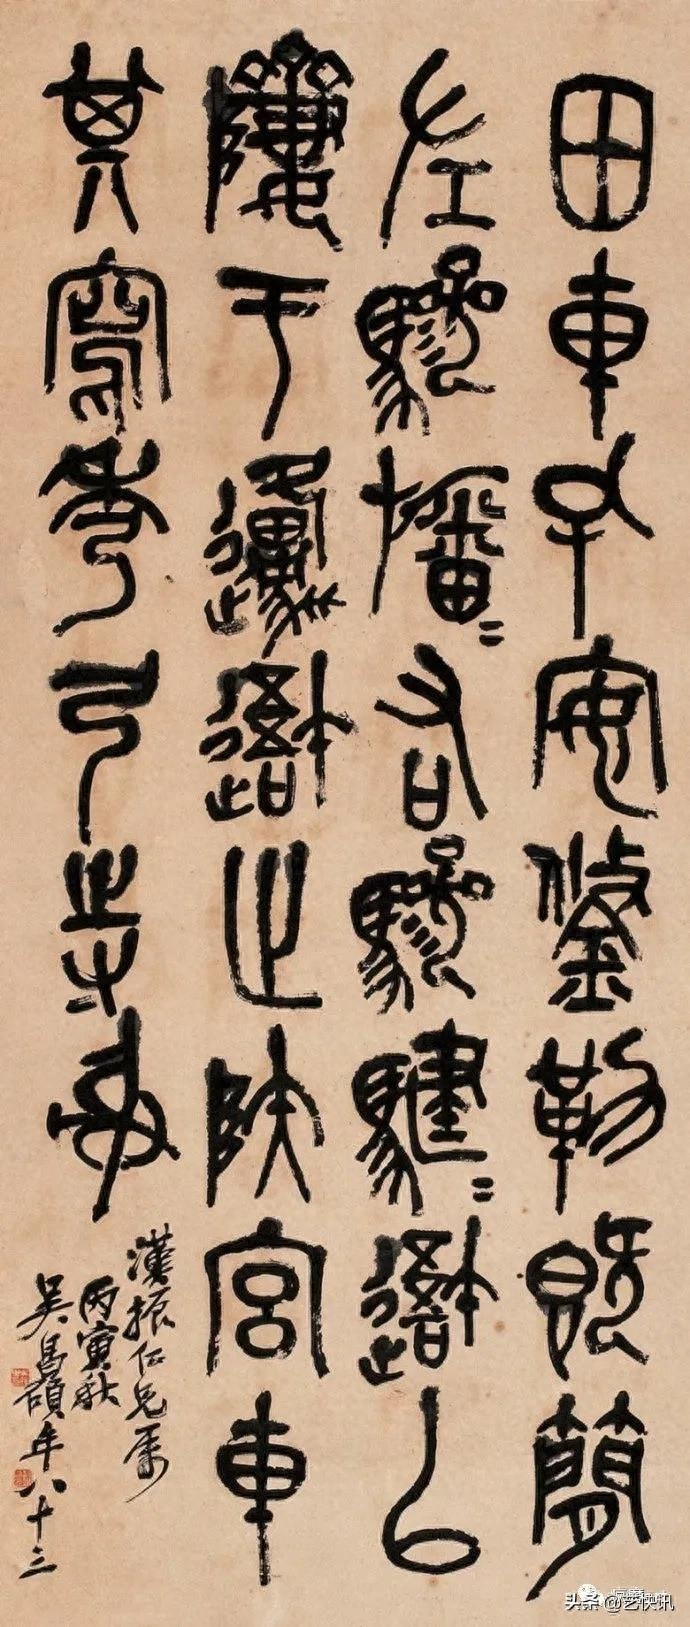 田車孔安鋚勒既簡
左驂旛=右驂騝=吾以
隮于邍吾止陕宮車
其寫秀弓寺射
漢振仁兄屬
丙寅秋
吳昌碩年八十三
头条@艺快讯